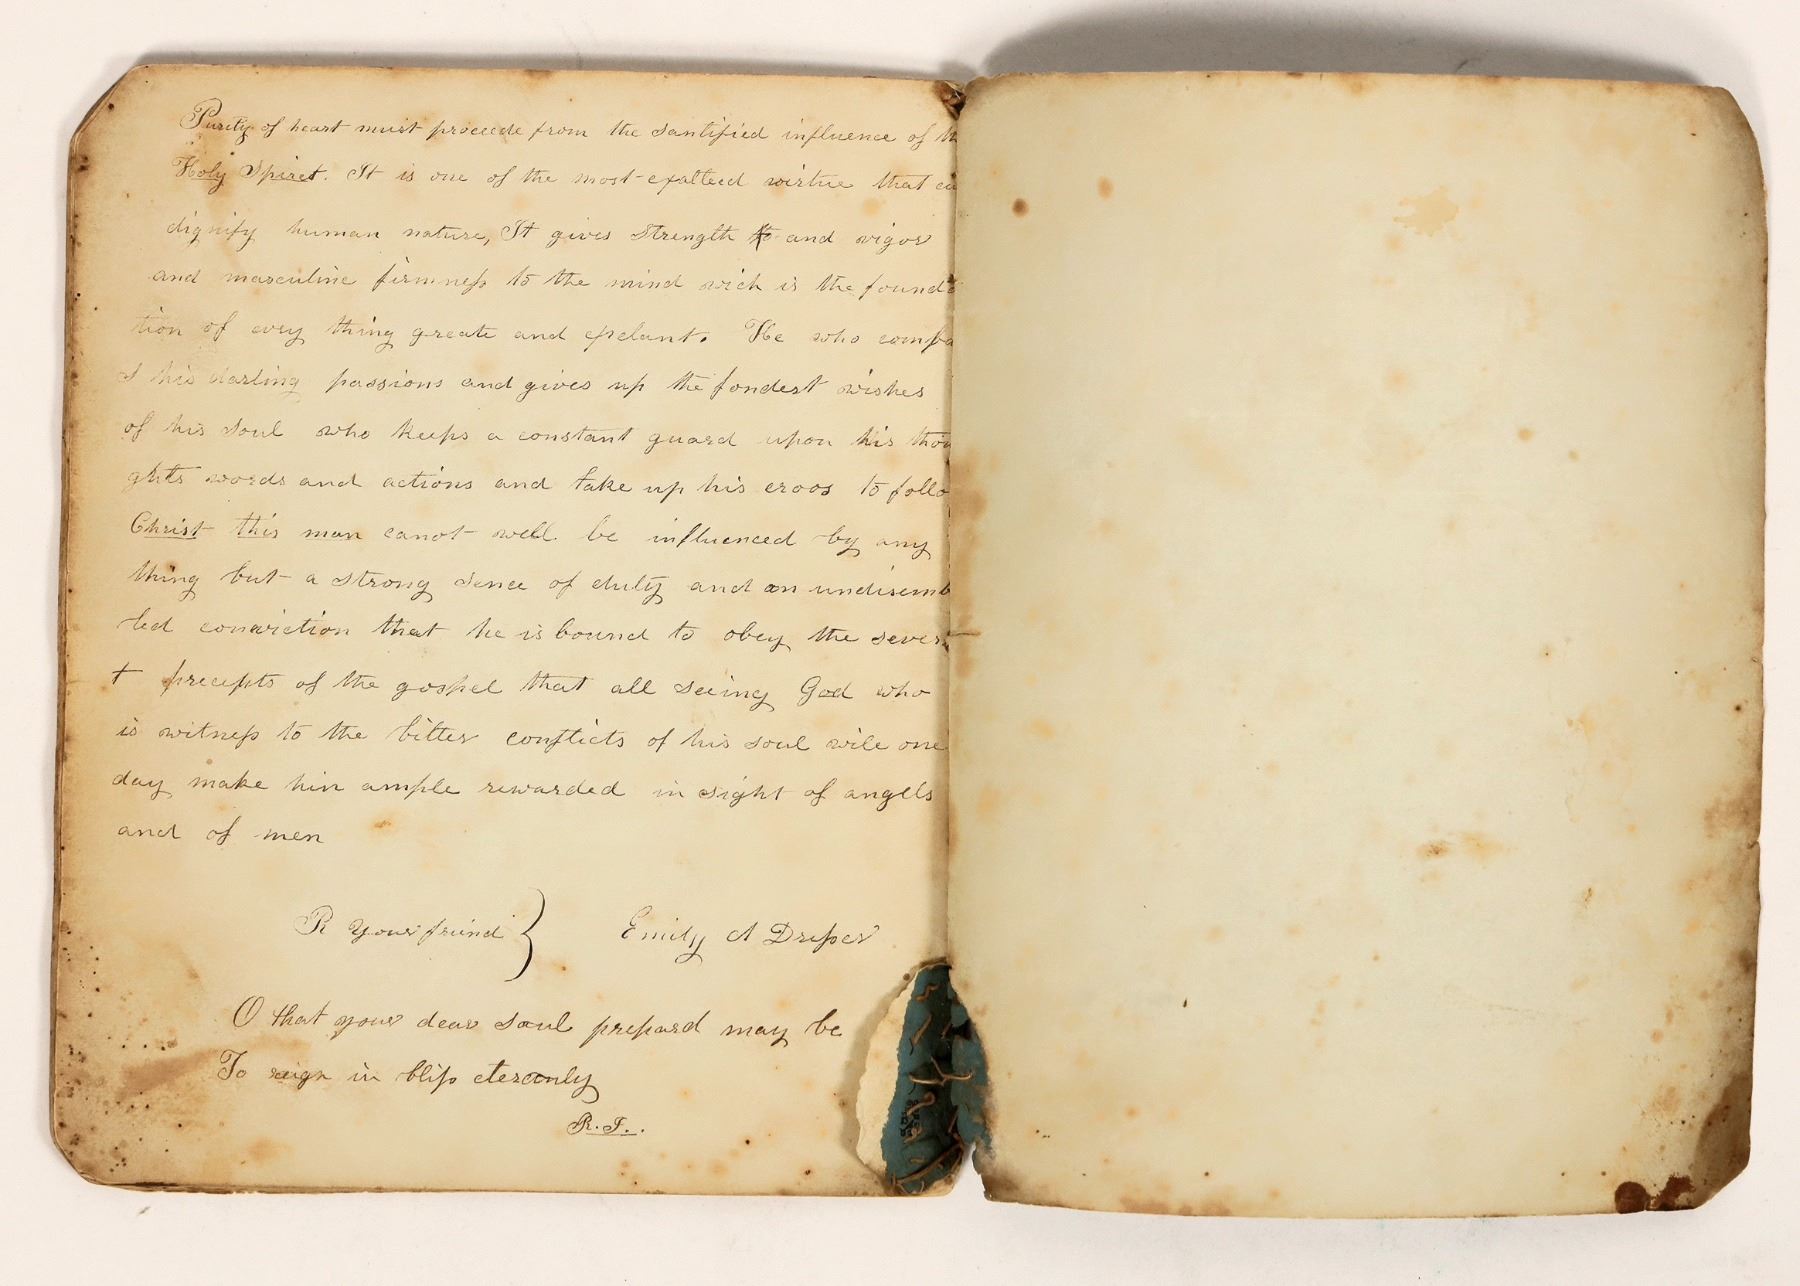 Purity of heart must proceede from the santified influence of th
Holy Spiret. It is one of the most exalteed virtue that ca
dignify human nature, It gives strength to and vigor
and masculine firmness to the mind wich is the founda
tion of evry thing greate and exelant. He who compa
s his darling passions and gives up the fondest wishes
of his soul who keeps a constant guard upon his thou
ghts words and actions and take up his cross to follo
Christ this man canot well be influenced by any
thing but a strong sence of duty and an undisemb
led conviction that he is bound to obey the severs
t precepts of the gospel that all seeing God who
is witness to the bitter conflicts of his soul wile one
day make him ample rewarded in sight of angels
and of men
R Your friend } Emily A Draper
O that your dear soul prepard may be
To reign in bliss eteranly
R. I..